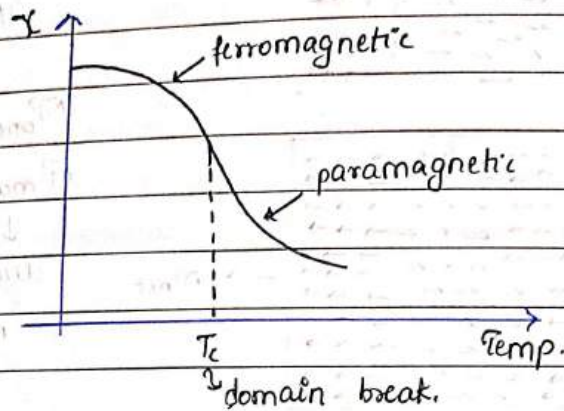 χ
ferromagnetic
paramagnetic
Tc
Temp.
domain break.